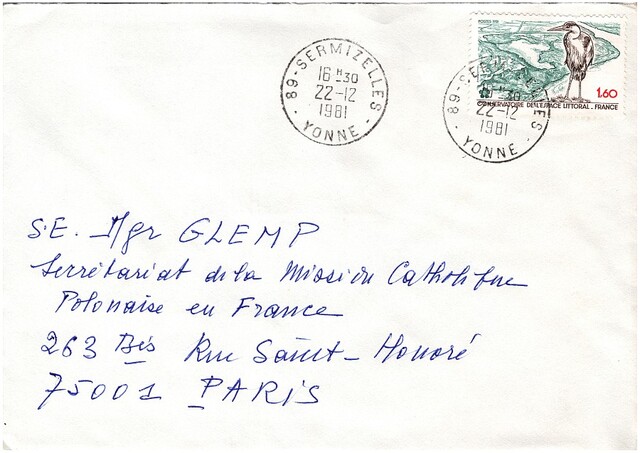 89-SERMIZELLES
16 H 30
22-12
1981
- YONNE -
89-SERMIZELLES
16 H 30
22-12
1981
- YONNE -
1,60
CONSERVATOIRE DE L'ESPACE LITTORAL. FRANCE
S.E. Mgr GLEMP
Serrétariat de la Mission Catholique
Polonaise en France
263 Bis Rue Saint-Honoré
75001 PARIS